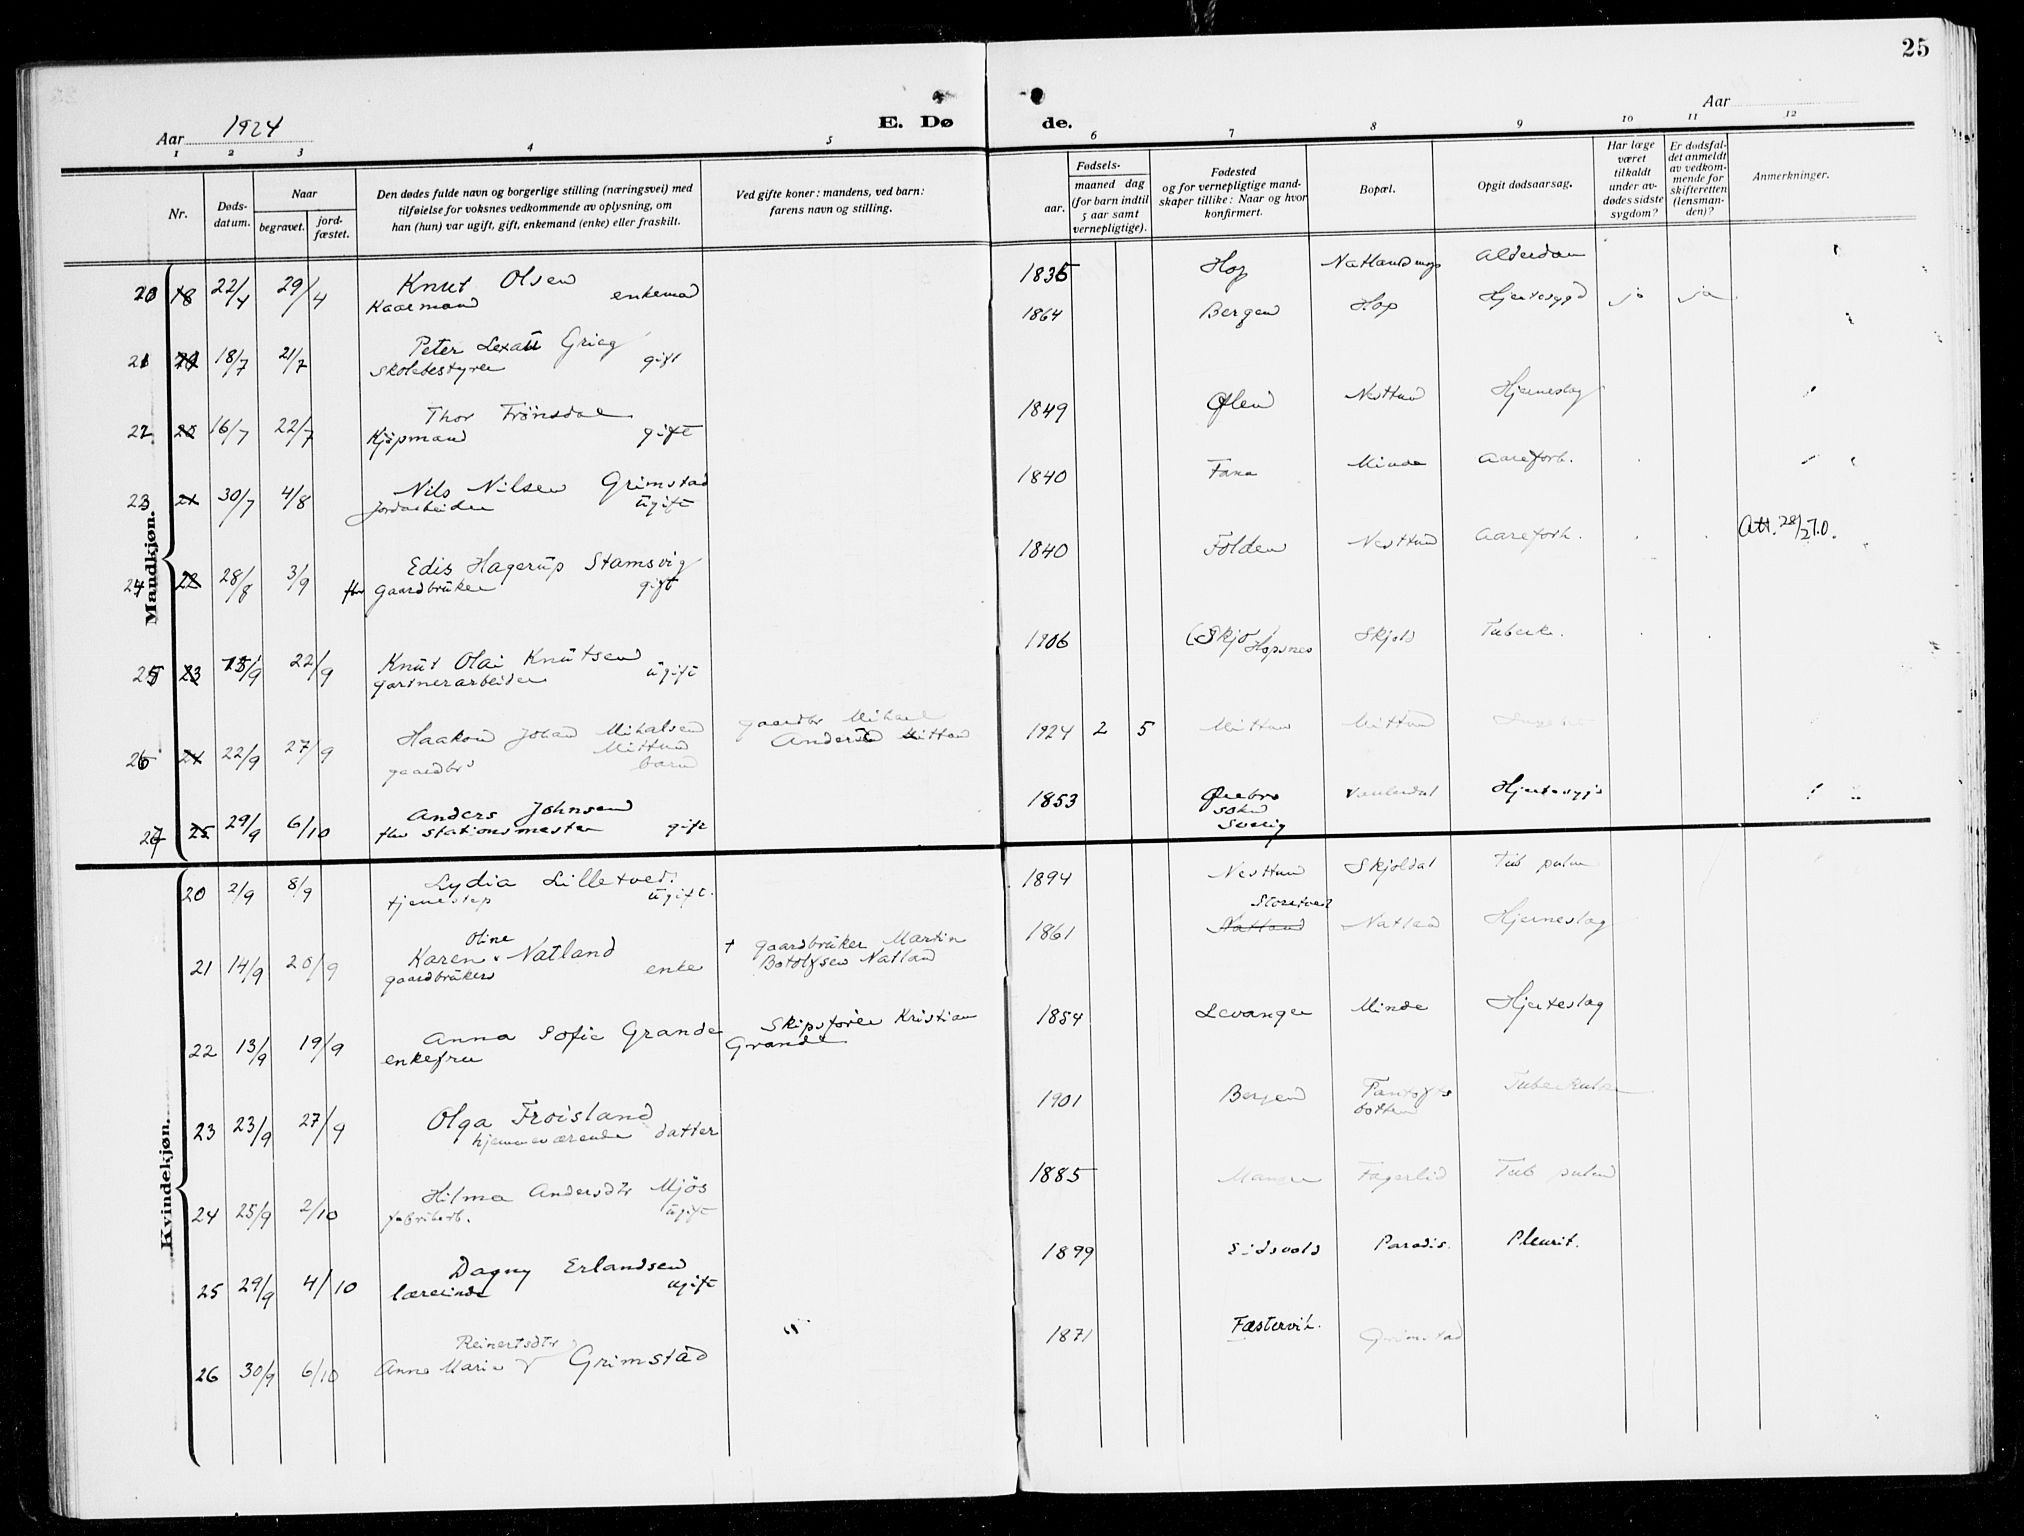 25
Aar 1924
E. Døde.
Aar
1 2 3 4 5 6 7 8 9 10 11 12
Nr.
Døds-datum.
Naar
begravet.
jord-fæstet.
Den dødes fulde navn og borgerlige stilling (næringsvei) med
tilføielse for voksnes vedkommende av oplysning, om
han (hun) var ugift, gift, enkemand (enke) eller fraskilt.
Ved gifte koner: mandens, ved barn:
farens navn og stilling.
Fødsels-
aar.
maaned dag
(for barn indtil
5 aar samt
vernepligtige).
Fødested
og for vernepligtige mand-
skaper tillike: Naar og hvor
konfirmert.
Bopæl.
Opgit dødsaarsag.
Har læge
været
tilkaldt
under av-
dødes sidste
sygdom?
Er dødsfal-
det anmeldt
av vedkom-
mende for
skifteretten
(lensman-
den)?
Anmerkninger.
Mandkjøn.
20 18 22/4 29/4 Knut Olsen 1835 Hop
Kaarmand enkemad
21 18/7 21/7 Peter Grieg 1864 Bergen Hop Hjertesygd ja ja
Skolebestyrer gift
22 20 16/7 22/7 Thor Trönsdal 1849 Ølen Nesttun Hjerneslag
Kjøpmand gift
23 21 30/7 4/8 Nils Nilsen Grimstad 1840 Fana Minde Aarefork.
Jordarbeider ugift
24 22 28/8 3/9 Edis Hagerup Stamsvig 1840 Folden Nesttun Aarefork. Att. 28/270.
fhv gaardbruker gift
25 23 15/9 22/9 Knut Olai Knutsen 1906 (Skjo Hopsnes Skjold Tuberk.
gartnerarbeider ugift
26 24 22/9 27/9 Haakon Johan Mikalsen gaardbr Mikael 1924 2 5 Mittun Mittun
Mittun Andersen Mittun
gaardbrs barn
27 25 29/9 6/10 Anders Johnsen 1853 Ørebro Hjertesygd
fhv stationsmester gift sokn
Sverig
Kvindekjøn.
20 2/9 8/9 Lydia Lilletved. 1894 Nesttun Skjoldal Tub pulm
tjenestep ugift.
21 14/9 20/9 Karen Oline Natland † gaardbruker Martin 1861 Storetvet Natland Natland Hjerneslag
gaardbrukers enke Botolfsen Natland
22 13/9 19/9 Anna Sofie Grande Skipsfører Kristian 1854 Levanger Minde Hjerteslag
enkefru Grande
23 23/9 27/9 Olga Froisland 1901 Bergen Fantofts Tuberkulose
hjemmeværende datter botten
24 25/9 2/10 Hilma Andersdtr Mjös 1885 Manger Fagerlid Tub pulm
fabrikarb. ugift
25 29/9 4/10 Dagny Erlandsen 1899 Eidsvold Paradis. Pleurit.
lærerinde ugift
26 30/9 6/10 Anna Marie Reinertsdtr Grimstad 1871 Fæstervik. Grimstad